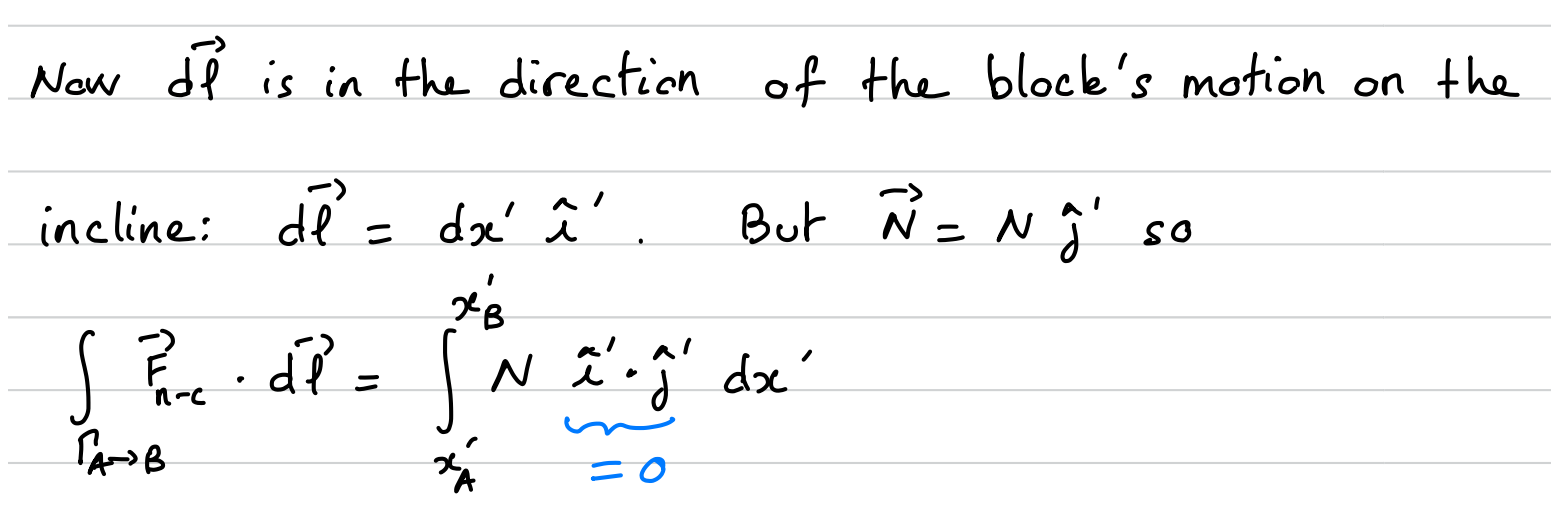 Now $\vec{dl}$ is in the direction of the block's motion on the
incline: $\vec{dl} = dx' \hat{i}'$. But $\vec{N} = N \hat{j}'$ so
$\int_{\Gamma_{A \to B}} \vec{F}_{n-c} \cdot \vec{dl} = \int_{x'_A}^{x'_B} N \underbrace{\hat{i}' \cdot \hat{j}'}_{= 0} dx'$